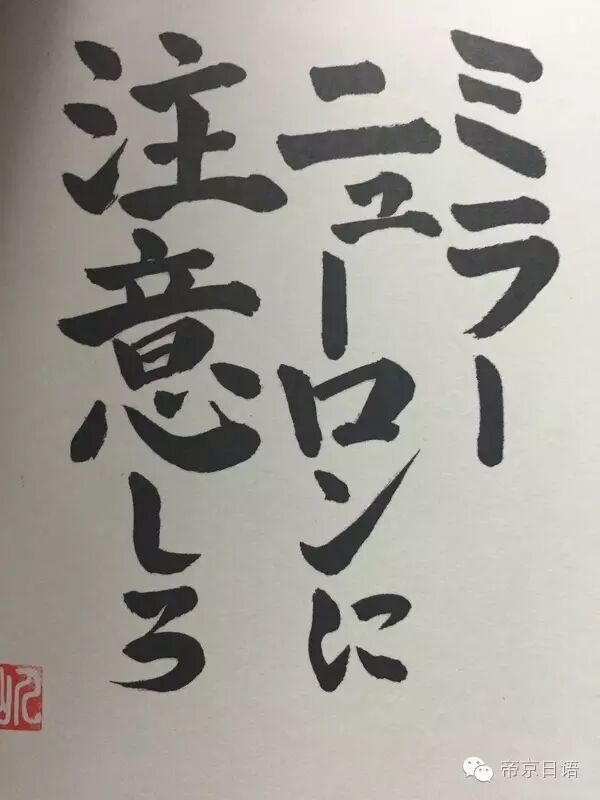 ミラー
ニューロンに
注意しろ
帝京日语